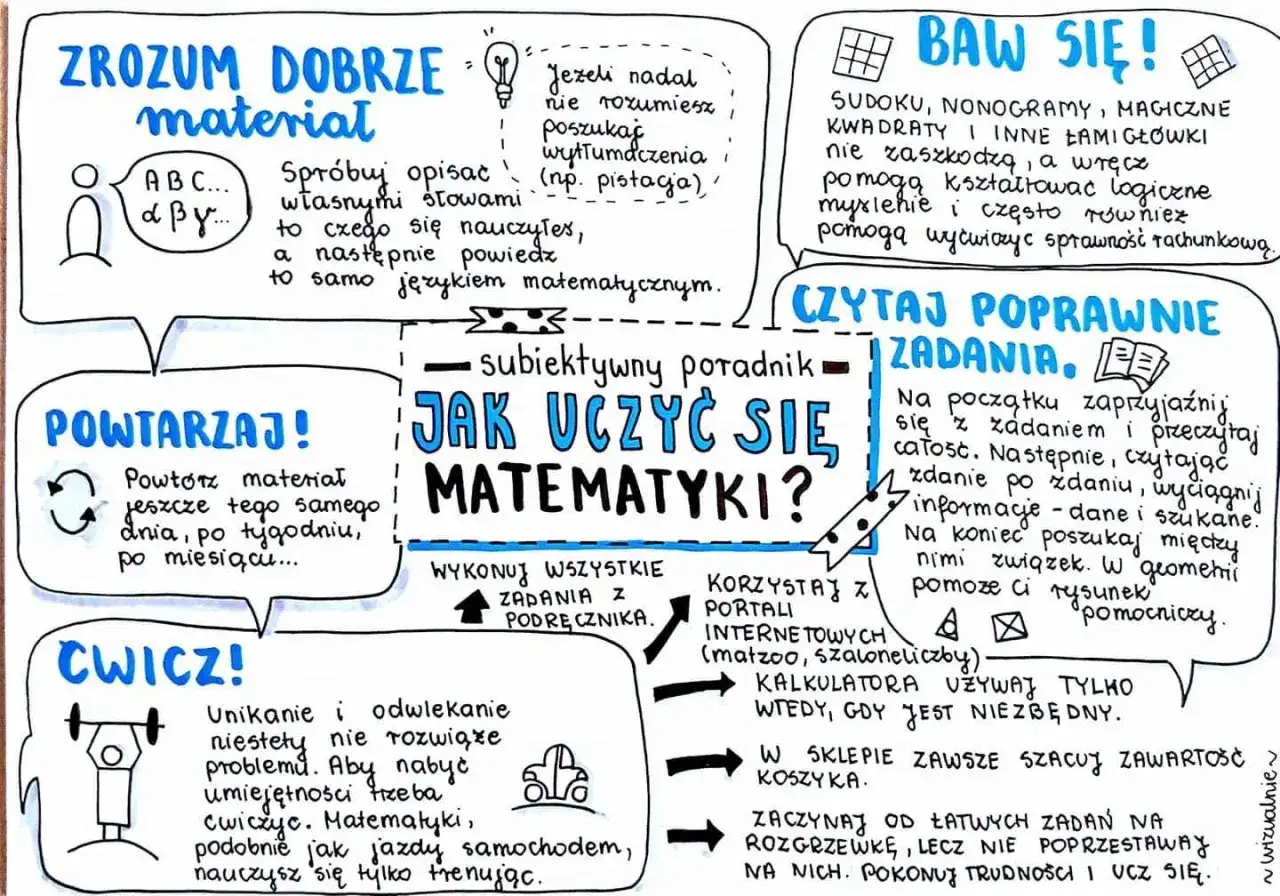 ZROZUM DOBRZE
materiał
A B C...
α β γ...
Spróbuj opisać
własnymi słowami
to czego się nauczyłeś,
a następnie powiedz
to samo językiem matematycznym.
Jeżeli nadal
nie rozumiesz
poszukaj
wytłumaczenia
(np. pistacja)
BAW SIĘ!
SUDOKU, NONOGRAMY, MAGICZNE
KWADRATY I INNE ŁAMIGŁÓWKI
nie zaszkodzą, a wręcz
pomogą kształtować logiczne
myślenie i często również
pomogą wyćwiczyć sprawność rachunkową.
subiektywny poradnik
JAK UCZYĆ SIĘ
MATEMATYKI?
CZYTAJ POPRAWNIE
ZADANIA.
Na początku zaprzyjaźnij
się z zadaniem i przeczytaj
całość. Następnie, czytając
zdanie po zdaniu, wyciągnij
informacje - dane i szukane.
Na koniec poszukaj między
nimi związek. W geometrii
pomoże Ci rysunek
pomocniczy.
POWTARZAJ!
Powtórz materiał
jeszcze tego samego
dnia, po tygodniu,
po miesiącu...
ĆWICZ!
Unikanie i odwlekanie
niestety nie rozwiąże
problemu. Aby nabyć
umiejętności trzeba
ćwiczyć. Matematyki,
podobnie jak jazdy samochodem,
nauczysz się tylko trenując.
WYKONUJ WSZYSTKIE
ZADANIA Z
PODRĘCZNIKA.
KORZYSTAJ Z
PORTALI
INTERNETOWYCH
(matzoo, szaloneliczby)
KALKULATORA UŻYWAJ TYLKO
WTEDY, GDY JEST NIEZBĘDNY.
W SKLEPIE ZAWSZE SZACUJ ZAWARTOŚĆ
KOSZYKA.
ZACZYNAJ OD ŁATWYCH ZADAŃ NA
ROZGRZEWKĘ, LECZ NIE POPRZESTAWAJ
NA NICH. POKONUJ TRUDNOŚCI I UCZ SIĘ.
~ wizualnie ~